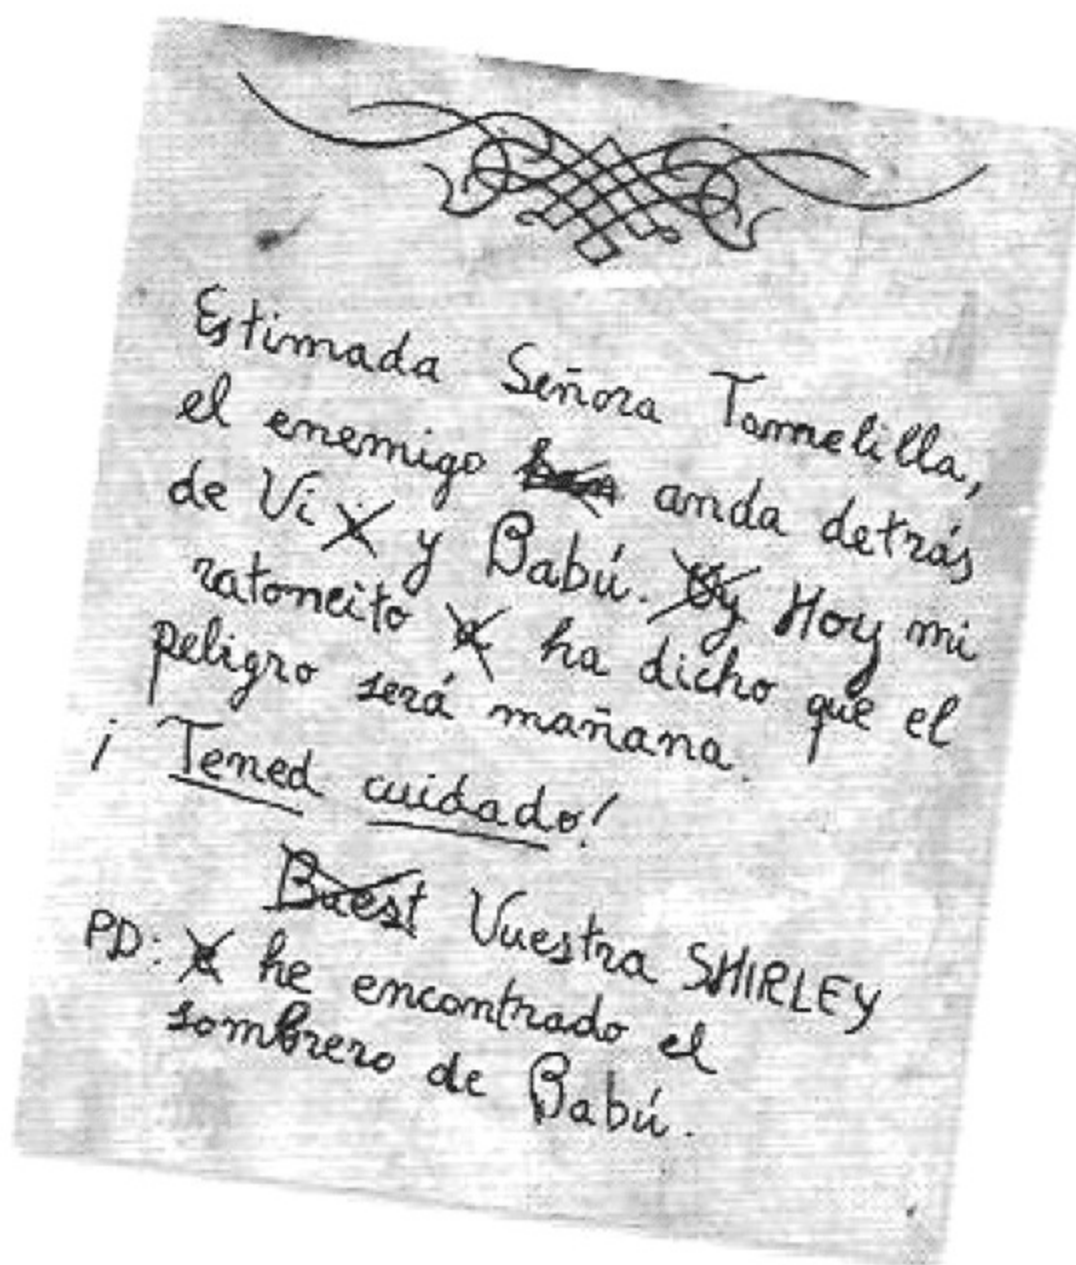 Estimada Señora Tamelilla,
el enemigo anda detrás
de Vi y Babú. Hoy mi
ratoncito ha dicho que el
peligro será mañana.
¡Tened cuidado!
Vuestra SHIRLEY
PD: he encontrado el
sombrero de Babú.